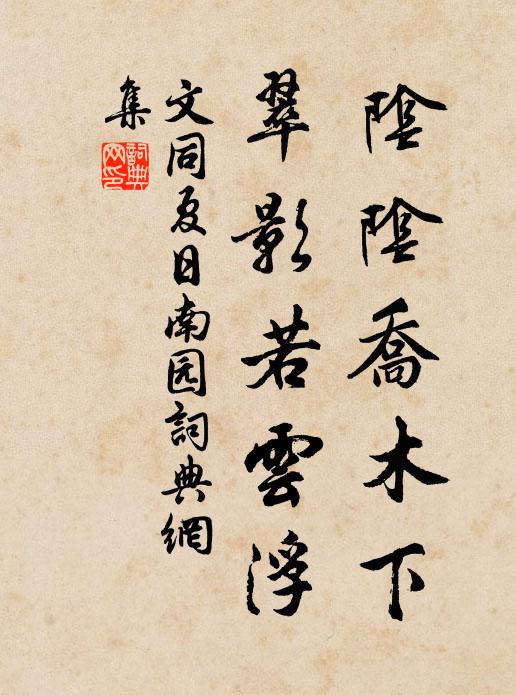 陰陰喬木下
翠影若雲浮
文同夏日南园詞典網
集
詞典
网印